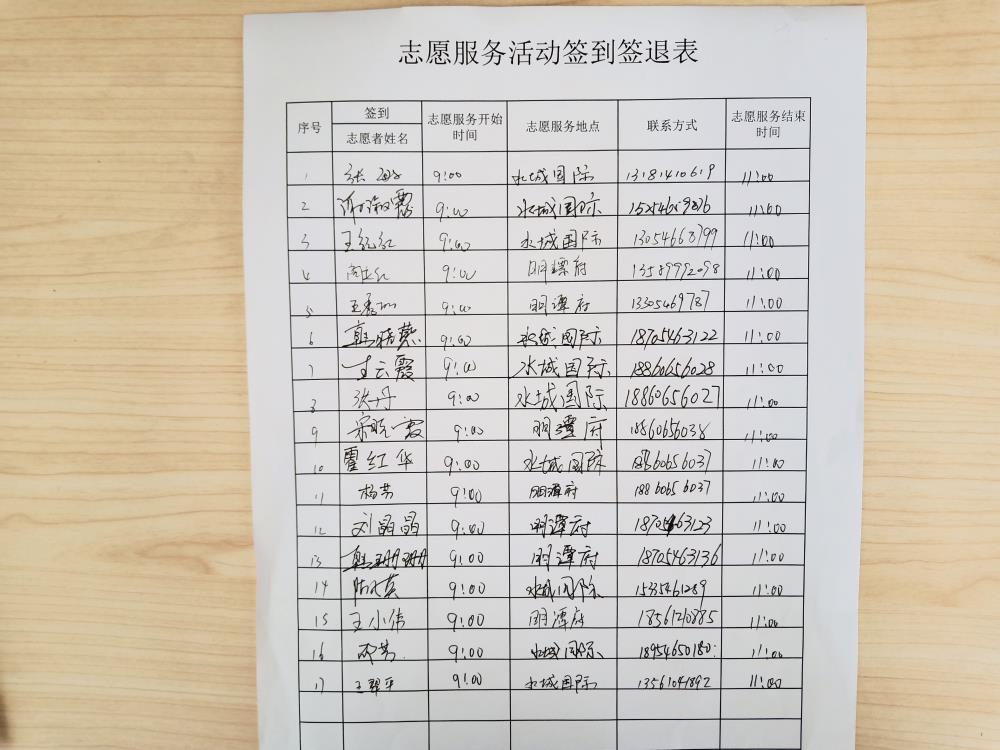 志愿服务活动签到签退表
序号 签到 志愿者姓名 志愿服务开始时间 志愿服务地点 联系方式 志愿服务结束时间
1 张 9:00 水城国际 13181410619 11:00
2 9:00 水城国际 11:00
3 王纪红 9:00 水城国际 13054668799 11:00
4 9:00 明潭府 13589992098 11:00
5 王秀 9:00 明潭府 13305469787 11:00
6 韩晓燕 9:00 水城国际 18705463122 11:00
7 王云霞 9:00 水城国际 18860656028 11:00
8 张丹 9:00 水城国际 18860656027 11:00
9 宋晓霞 9:00 明潭府 18860656038 11:00
10 霍红华 9:00 水城国际 18860656037 11:00
11 杨芳 9:00 明潭府 18860656037 11:00
12 刘晶晶 9:00 明潭府 18705463123 11:00
13 韩珊珊 9:00 明潭府 18705463136 11:00
14 9:00 水城国际 11:00
15 王小伟 9:00 明潭府 11:00
16 9:00 水城国际 18954650180 11:00
17 王翠平 9:00 水城国际 13561041892 11:00